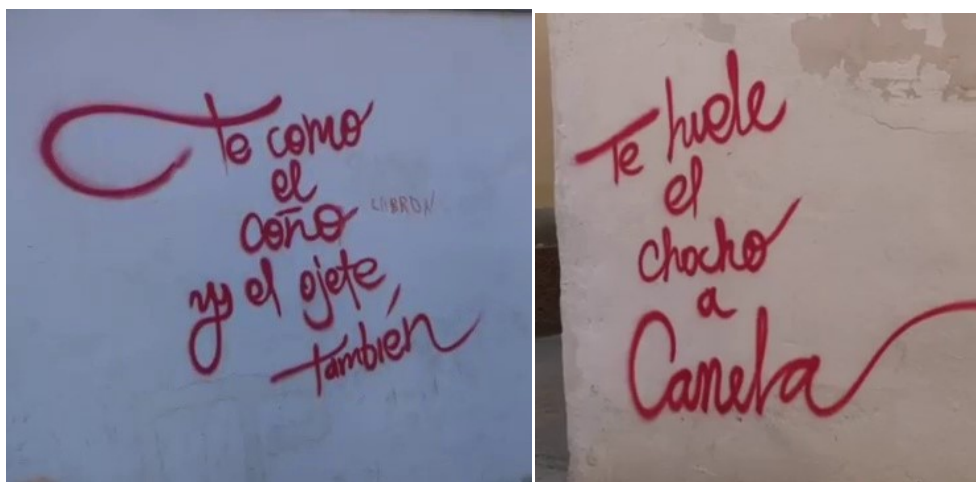 Te como
el
coño
y el ojete
también
CABRON
Te huele
el
chocho
a
Canela